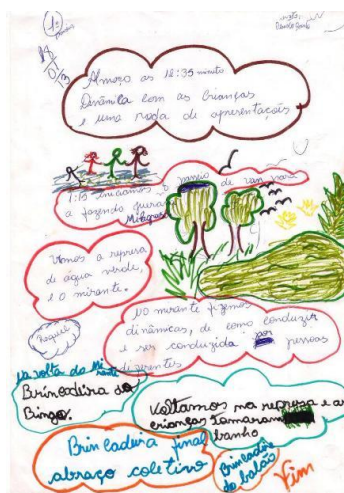 1º
18
01
13
Almoço as 12:35 minuto
Dinâmica com as crianças
e uma roda de apresentações
1:15 iniciamos o passeio de van para
a fazendo
Milagrosa
Vimos a represa
de agua verde,
e o mirante.
Raquel
No mirante fizemos
dinâmicas, de como conduzir
e ser conduzida por pessoas
diferentes
na volta do Mirante
Brincadeira do
Bingo.
Voltamos na represa e as
crianças tomaram
banho
Brincadeira final
abraço coletivo
Brincadeira
do balão
Fim